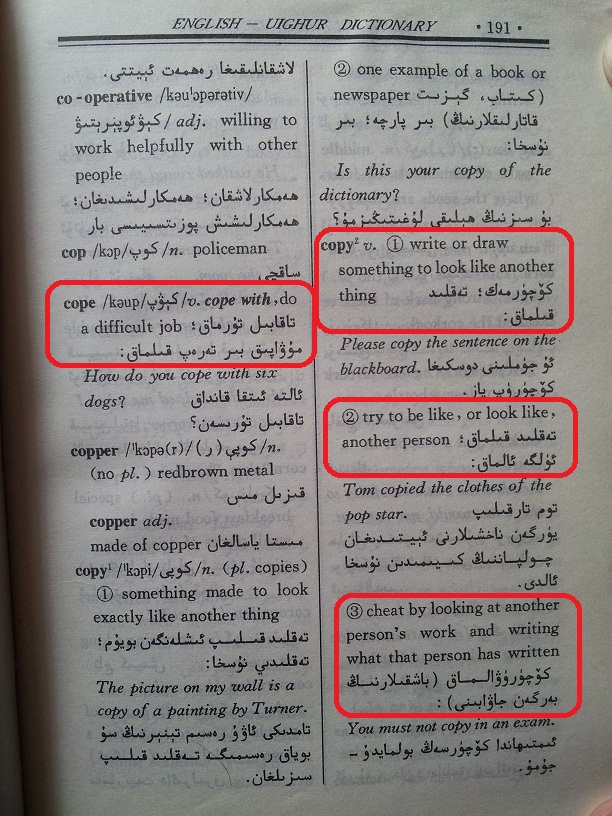 ENGLISH — UIGHUR DICTIONARY
· 191 ·
لاشقانلىقىغا رەھمەت ئېيتتى.
co-operative /kəu'ɔpərətiv/
/كېۋئوپىرېتىۋ adj. willing to
work helpfully with other
people
ھەمكارلاشقان؛ ھەمكارلىشىدىغان؛
ھەمكارلىشىش پوزىتسىيىسى بار
cop /kɔp/كوپ/n. policeman
ساقچى
cope /kəup/كېۋپ/v. cope with, do
a difficult job تاقابىل تۇرماق؛
مۇۋاپىق بىر تەرەپ قىلماق:
How do you cope with six
dogs? ئالتە ئىتقا قانداق
تاقابىل تۇرىسەن؟
copper /'kɔpə(r)/كوپې(ر)/n.
(no pl.) redbrown metal
قىزىل مىس
copper adj.
made of copper مىستا ياسالغان
copy¹ /'kɔpi/كوپى/n. (pl. copies)
① something made to look
exactly like another thing
تەقلىد قىلىپ ئىشلەنگەن بويۇم؛
تەقلىدىي نۇسخا:
The picture on my wall is a
copy of a painting by Turner.
تامدىكى ئاۋۇ رەسىم تېنېرنىڭ سۇ
بوياق رەسىمىگە تەقلىد قىلىپ
سىزىلغان.
② one example of a book or
newspaper (كىتاب، گېزىت
قاتارلىقلارنىڭ) بىر پارچە؛ بىر
نۇسخا:
Is this your copy of the
dictionary?
بۇ سىزنىڭ ھېلىقى لۇغىتىڭىزمۇ؟
copy² v. ① write or draw
something to look like another
thing كۆچۈرمەك؛ تەقلىد
قىلماق:
Please copy the sentence on the
blackboard. ئۇ جۈملىنى دوسكىغا
كۆچۈرۈپ ياز.
② try to be like, or look like,
another person تەقلىد قىلماق؛
ئۈلگە ئالماق:
Tom copied the clothes of the
pop star. توم تارقىلىپ
يۈرگەن ناخشىلارنى ئېيتىدىغان
چولپاننىڭ كىيىمىدىن نۇسخا
ئالدى.
③ cheat by looking at another
person's work and writing
what that person has written
كۆچۈرۈۋالماق (باشقىلارنىڭ
بەرگەن جاۋابىنى):
You must not copy in an exam.
ئىمتىھاندا كۆچۈرسەڭ بولمايدۇ ـ
جۇمۇ.